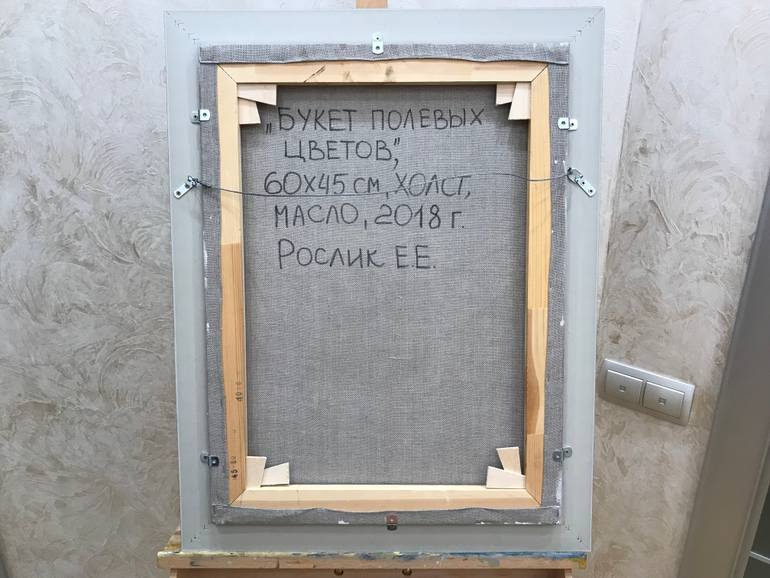 „БУКЕТ ПОЛЕВЫХ
ЦВЕТОВ",
60х45 см, ХОЛСТ,
МАСЛО, 2018 г.
РОСЛИК Е.Е.